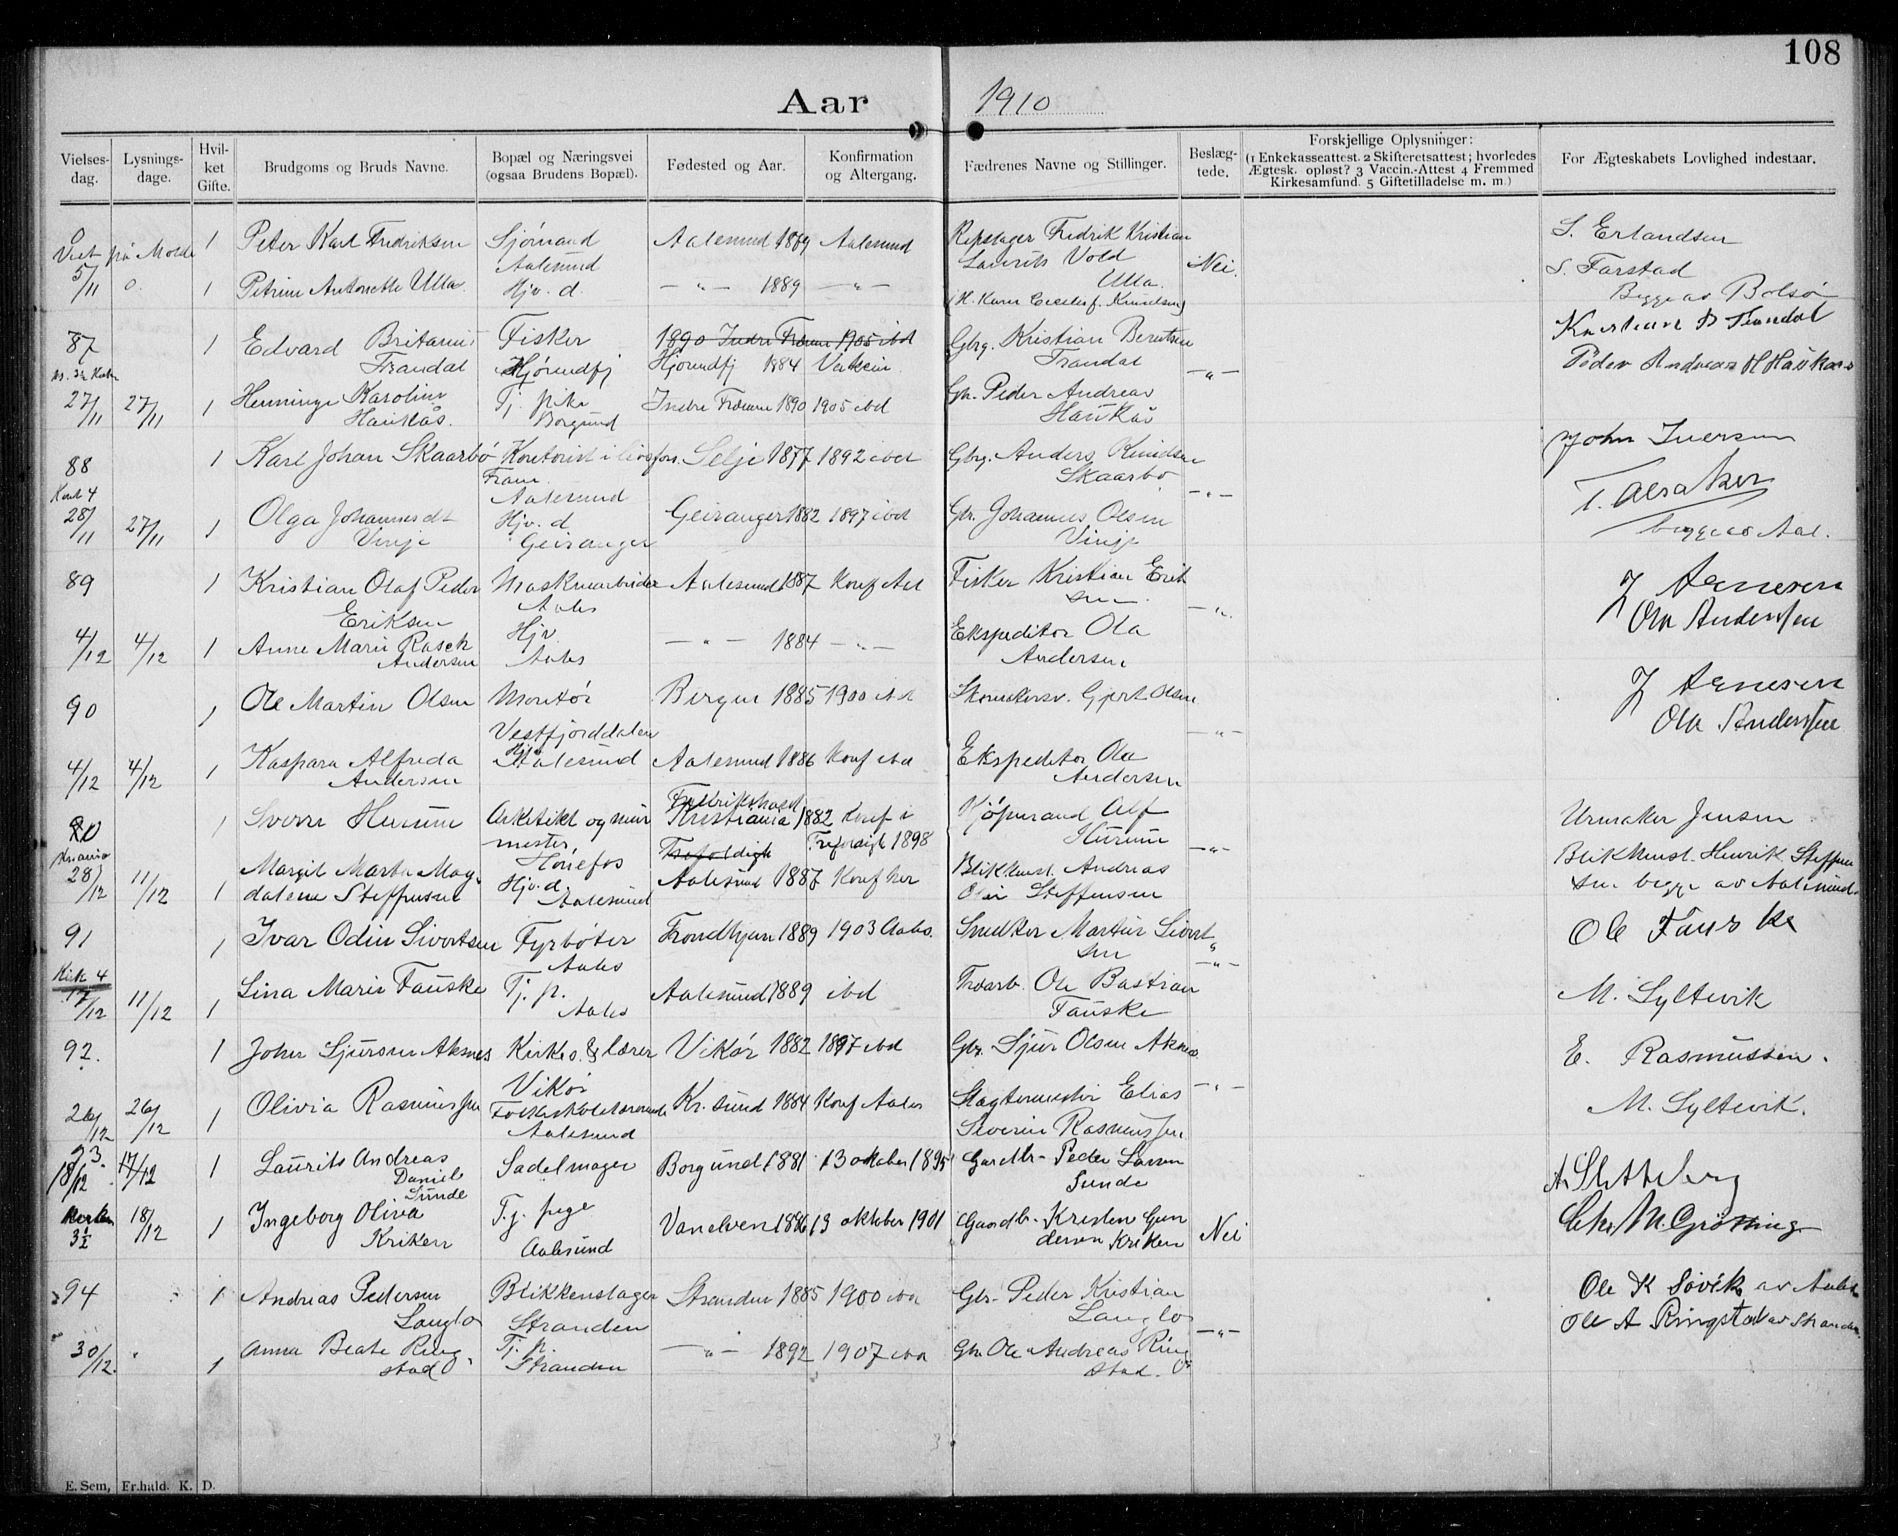 108
Aar 1910
Vielses-dag. Lysnings-dage. Hvil-ket Gifte. Brudgoms og Bruds Navne. Bopæl og Næringsvei (ogsaa Brudens Bopæl). Fødested og Aar. Konfirmation og Altergang. Fædrenes Navne og Stillinger. Beslæg-tede. Forskjellige Oplysninger: (1 Enkekasseattest. 2 Skifteretsattest; hvorledes Ægtesk. opløst? 3 Vaccin.-Attest 4 Fremmed Kirkesamfund. 5 Giftetilladelse m. m.) For Ægteskabets Lovlighed indestaar.
1 Peter Karl Fredriksen Sjømand Aalesund 1889 Aalesund Repslager Fredrik Kristian S. Erlandsen
Viet på Molde Aalesund Laurits Vold Nei. S. Farstad
5/11 1 Petrine Antonette Ulla Hjv. d. —"— 1889 —"— Ulla. Begge av Bolsø
87 1 Edvard Fisker 1890 Indre 1905 ibd Gbrg. Kristian Berntsen
Frandal Hjørundfj Hjørundfj 1884 Frandal —"— Peder Andreas H Haukaas
27/11 27/11 1 Karoline Tj. pike Indre 1890 1905 ibd Gbr. Peder Andreas
Haukås. Borgund Haukås
1 Karl Johan Skaarbø Kontorist i Selje 1877 1892 ibd Gbrg. Anders Knudsen John Iversen
88 Fram Skaarbø
Aalesund —"— T. Alsaker
28/11 27/11 1 Olga Johannesdt Hjv. d Geiranger 1882 1897 ibd Gbr. Johannes Olsen
Vinje Geiranger Vinje begge av Aal.
89 1 Kristian Olaf Peder Maskinarbeider Aalesund 1887 Konf Aal Fisker Kristian Erik
Eriksen Aales sen —"— Ola Anderssen
4/12 4/12 1 Anne Marie Rasch Hjv. —"— 1884 —"— Ekspeditør Ola
Andersen Aales Andersen
90 1 Ole Martin Olsen Montør Bergen 1885 1900 ibd Skomakersv. Gjert Olsen
Vestfjorddalen —"— Ola Anderssen
4/12 4/12 1 Kaspara Alfreda Hjv Aalesund Aalesund 1886 Konf ibd Ekspeditør Ola
Andersen Andersen
Fredrikshald
90 1 Sverre Hurum Arkitekt og mur Kristiania 1882 Konf i Kjøpmand Alf Urmaker Jensen
mester, Trefoldigh Trefoldigh 1898 Hurum —"—
28/12 11/12 1 Margit Marta Mag- Hønefos Blikkensl. Andreas Blikkensl. Henrik Steffen
dalene Steffensen Hjv. d. Aalesund Aalesund 1887 Konf her Steffensen sen begge av Aalesund.
91 1 Ivar Odin Sivertsen Fyrbøter Trondhjem 1889 1903 Aales. Snekker Martin Sivert Ole Fauske
Aales sen —"—
Kirk 4
17/12 11/12 1 Lina Marie Fauske Tj. p. Aalesund 1889 ibd Ole Bastian M. Syltevik
Aales Fauske
92. 1 John Sjursen Aksnes Kirkes. & lærer Vikør 1882 1897 ibd Gbr. Sjur Olsen Aksnes E. Rasmussen.
Vikør —"—
26/12 26/12 1 Olivia Rasmussen Folkeskolelærerinde Kr. sund 1884 Konf Aales Slagtermester Elias M. Syltevik.
Aalesund Severin Rasmussen
93.
18/12 17/12 1 Laurits Andreas Sadelmager Borgund 1881 13 oktober 1895 Gardbr- Peder Larsen A. Sletteberg
Daniel Sunde Sunde
3½ 18/12 1 Ingeborg Oliva T.j. pige Vanelven 1886 13 oktober 1901 Gaardbr- Kristen Gun Nei Chr. M. Grøtting
Kriken Aalesund dersen Kriken
94 1 Andreas Pedersen Blikkenslager Stranden 1885 1900 ibd Gbr- Peder Kristian Ole K Søvik av Aales
Langlo Stranden Langlo —"— Ole A Ringstad av Stranden
30/12. 1 Anna Beate Ring Tj. p. —"— 1892 1907 ibd Gbr Ole Andreas Ring
stad Stranden stad.
E. Sem, Fr.hald. K. D.